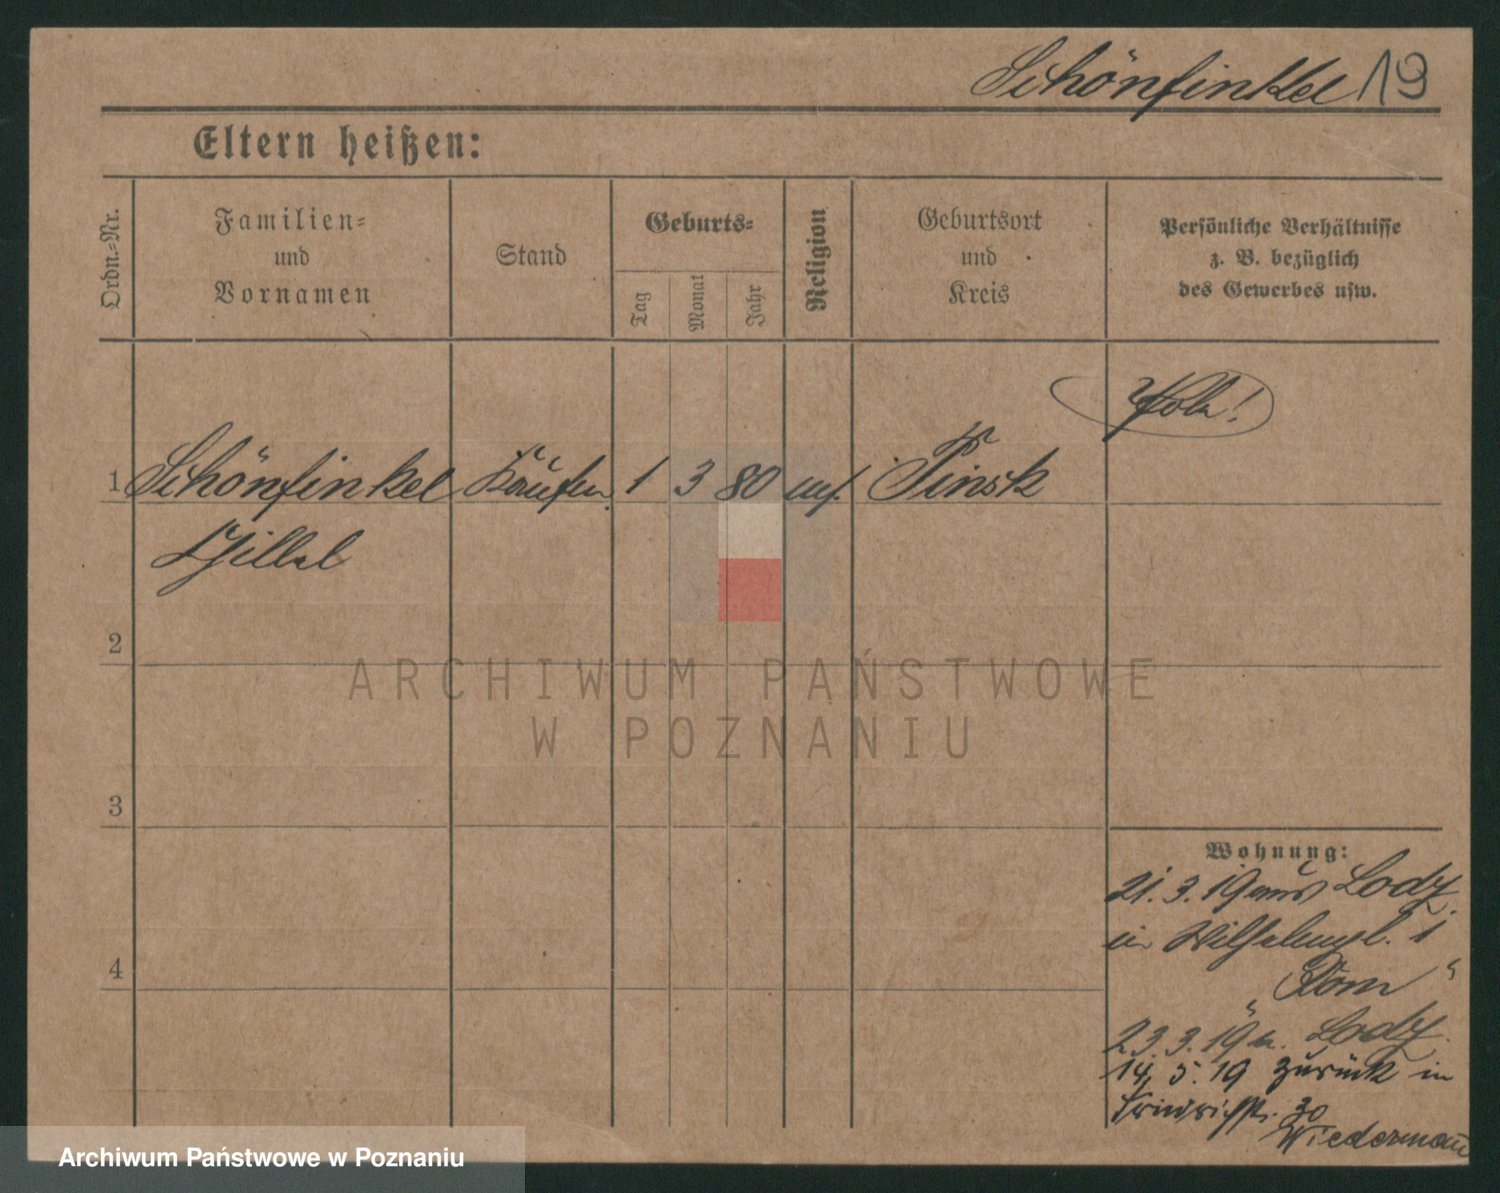 Schönfinkel 19
Eltern heißen:
Ordn.-Nr.
Familien-
und
Vornamen
Stand
Geburts-
Tag
Monat
Jahr
Religion
Geburtsort
und
Kreis
Persönliche Verhältnisse
z. B. bezüglich
des Gewerbes usw.
Pole!
1 Schönfinkel Kaufm. 1 3 80 Pinsk
Hillel
2
3
4
Wohnung:
21. 3. 19 aus Lodz
in Wilhelmpl. 1
"Rom"
23. 3. 19 n. Lodz.
14. 5. 19 zurück in
Friedrichstr. 30
Wiedermann
ARCHIWUM PAŃSTWOWE
W POZNANIU
Archiwum Państwowe w Poznaniu